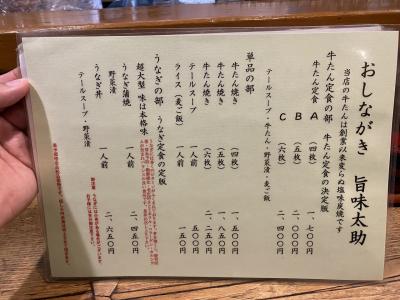 おしながき 旨味太助
当店の牛たんは創業以来変らぬ塩味炭焼です
牛たん定食の部 牛たん定食の決定版
牛たん定食
A (四枚) 一、七〇〇円
B (五枚) 二、〇〇〇円
C (六枚) 二、四〇〇円
テールスープ・牛たん・野菜漬・麦ご飯
単品の部
牛たん焼き (四枚) 一、五〇〇円
牛たん焼き (五枚) 一、八五〇円
牛たん焼き (六枚) 二、二五〇円
テールスープ 一人前 五〇〇円
ライス(麦ご飯) 一人前 一五〇円
うなぎの部 うなぎ定食の定版
超大型 味は本格味
うなぎ蒲焼 一人前 二、四五〇円
野菜漬
うなぎ丼 一人前 二、六五〇円
テールスープ・野菜漬